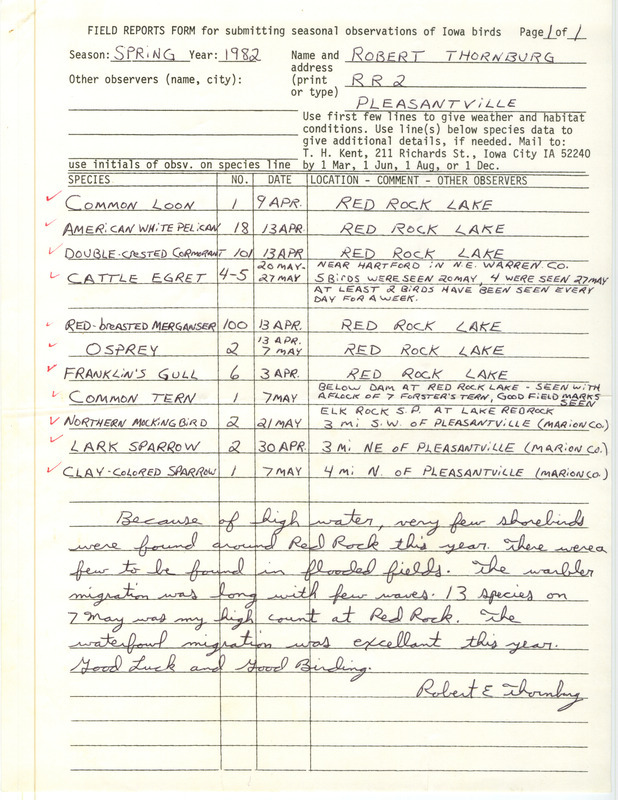 FIELD REPORTS FORM for submitting seasonal observations of Iowa birds Page 1 of 1
Season: SPRING Year: 1982 Name and ROBERT THORNBURG
address
Other observers (name, city): (print RR 2
or type)
PLEASANTVILLE
Use first few lines to give weather and habitat
conditions. Use line(s) below species data to
give additional details, if needed. Mail to:
T. H. Kent, 211 Richards St., Iowa City IA 52240
use initials of obsv. on species line by 1 Mar, 1 Jun, 1 Aug, or 1 Dec.
SPECIES NO. DATE LOCATION - COMMENT - OTHER OBSERVERS
COMMON LOON 1 9 APR. RED ROCK LAKE
AMERICAN WHITE PELICAN 18 13 APR. RED ROCK LAKE
DOUBLE-CRESTED CORMORANT 101 13 APR RED ROCK LAKE
20 MAY- NEAR HARTFORD IN N.E. WARREN CO.
CATTLE EGRET 4-5 27 MAY 5 BIRDS WERE SEEN 20 MAY, 4 WERE SEEN 27 MAY
AT LEAST 2 BIRDS HAVE BEEN SEEN EVERY
DAY FOR A WEEK.
RED-BREASTED MERGANSER 100 13 APR. RED ROCK LAKE
13 APR.
OSPREY 2 7 MAY RED ROCK LAKE
FRANKLIN'S GULL 6 3 APR. RED ROCK LAKE
BELOW DAM AT RED ROCK LAKE - SEEN WITH
COMMON TERN 1 7 MAY A FLOCK OF 7 FORSTER'S TERN, GOOD FIELD MARKS
SEEN
ELK ROCK S.P. AT LAKE REDROCK
NORTHERN MOCKINGBIRD 2 21 MAY 3 mi S.W. OF PLEASANTVILLE (MARION CO.)
LARK SPARROW 2 30 APR. 3 mi NE OF PLEASANTVILLE (MARION CO.)
CLAY-COLORED SPARROW 1 7 MAY 4 mi N. OF PLEASANTVILLE (MARION CO.)
Because of high water, very few shorebirds
were found around Red Rock this year. There were a
few to be found in flooded fields. The warbler
migration was long with few waves. 13 species on
7 May was my high count at Red Rock. The
waterfowl migration was excellant this year.
Good Luck and Good Birding.
Robert E Thornburg